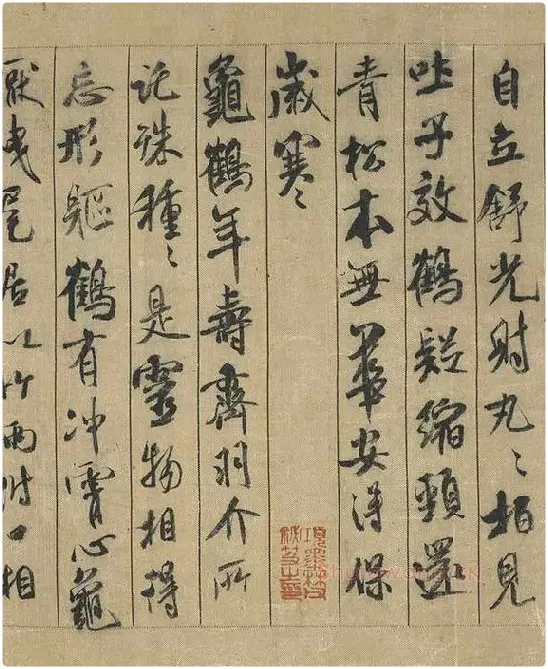 自立舒光射丸〻柏見
吐子效鶴疑縮頸還
青松本無華安得保
歲寒〻
龜鶴年壽齊羽介所
託殊種〻是靈物相得
忘形軀鶴有冲霄心龜
厭曳尾居以竹兩附口相
項墨林父
祕笈之印